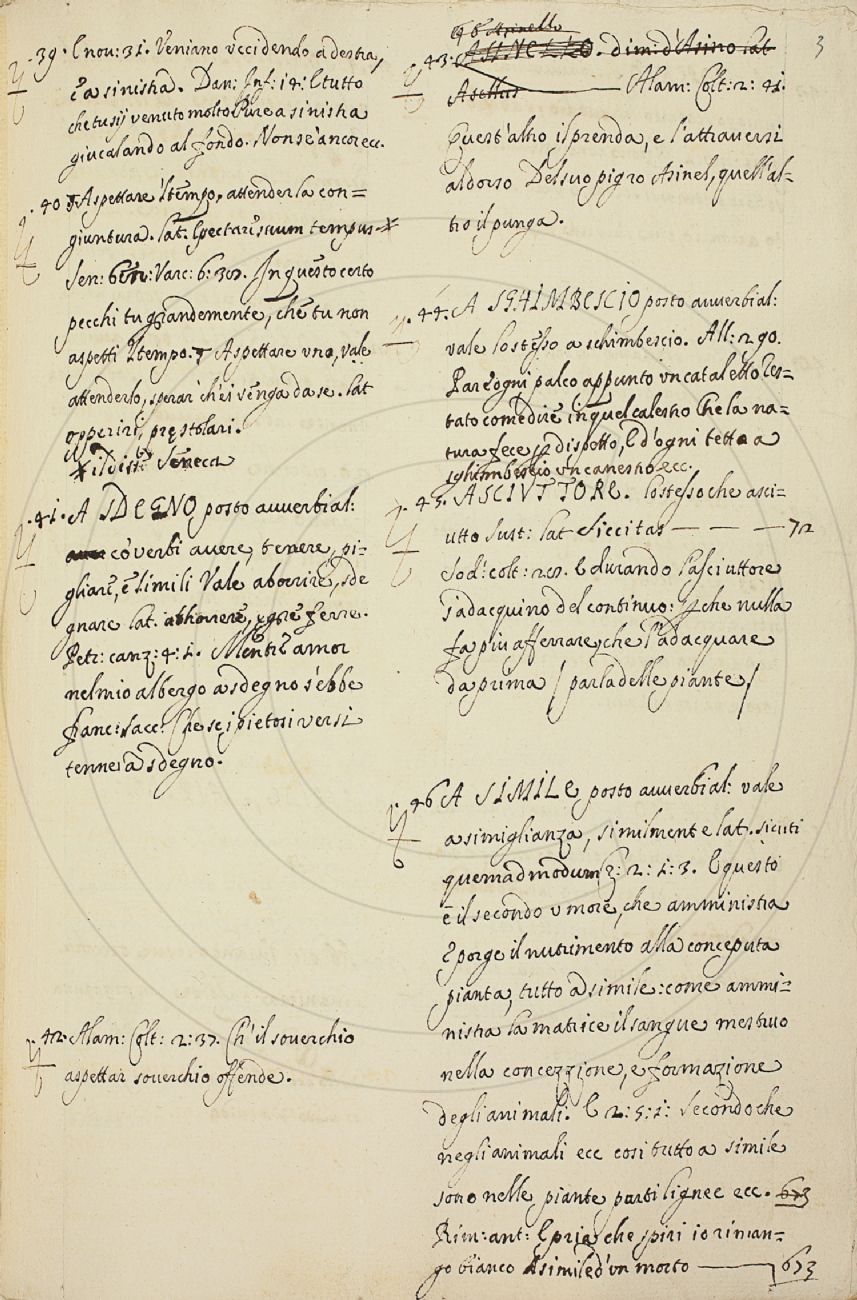 39. E nou: 31. Veniano vccidendo a destra,
e a sinistra. Dan: Inf: 14: E tutto
che tu sij venuto molto Pure a sinistra
giu calando al fondo. Non se' ancor ecc.
40 Aspettare 'l tempo, attender la con=
giuntura. lat. spectare suum tempus
Sen: ben: Varc: 6: 30. In questo certo
pecchi tu grandemente, che tu non
aspetti 'l tempo. Aspettare vno, vale
attenderlo, sperar ch'ei venga da se. lat
opperiri, pręstolari.
il dis: Seneca
41. A SDEGNO posto auuerbial:
cō verbi auere, tenere, pi=
gliare, e simili Vale aborrire, sde
gnare lat. abhorrere, ęgre ferre.
Petr: canz: 4: 1. Mentre amor
nel mio albergo a sdegno s'ebbe
Franc: Sacc: Che sej pietosi versi
tenne a sdegno.
42. Alam: Colt: 2: 37. Ch'il souerchio
aspettar souerchio offende.
3
Asinello
43. ASINELLO. dim: d'Asino lat
Asellus — Alam: Colt: 2: 41.
Quest'altro il prenda, e l'attrauersi
al dorso Del suo pigro Asinel, quell'al=
tro il punga.
44. A SGHIMBESCIO posto auuerbial:
vale lo stesso a schimbescio. All: 290.
Par ogni palco appunto vn cataletto Tes=
tato com'edire in quel calestro Che la na=
tura fece p dispetto, E d'ogni tetto a
sghimbescio vn canestro ecc.
45. ASCIVTTORE. lo stesso che asci=
utto sust: lat siccitas — — — 72
Sod: colt: 20. E durando l'asciuttore
s'adacquino del continuo: che nulla
fa piu afferrare, che l'adacquare
da prima / parla delle piante /
46 A SIMILE posto auuerbial: vale
a simiglianza, similmente lat. sicuti
quemadmodum 2: 1: 3. E questo
è il secondo vmore, che amministra
e porge il nutrimento alla conceputa
pianta, tutto a simile: come ammi=
nistra la matrice il sangue mestruo
nella concezzione, e formazione
degli animali. E 2: 5: 1: Secondo che
negli animali ecc cosi tutto a simile
sono nelle piante parti lignee ecc. 673
Rim: ant: E pria che spiri io riman=
go bianco A simile d'vn morto — 673